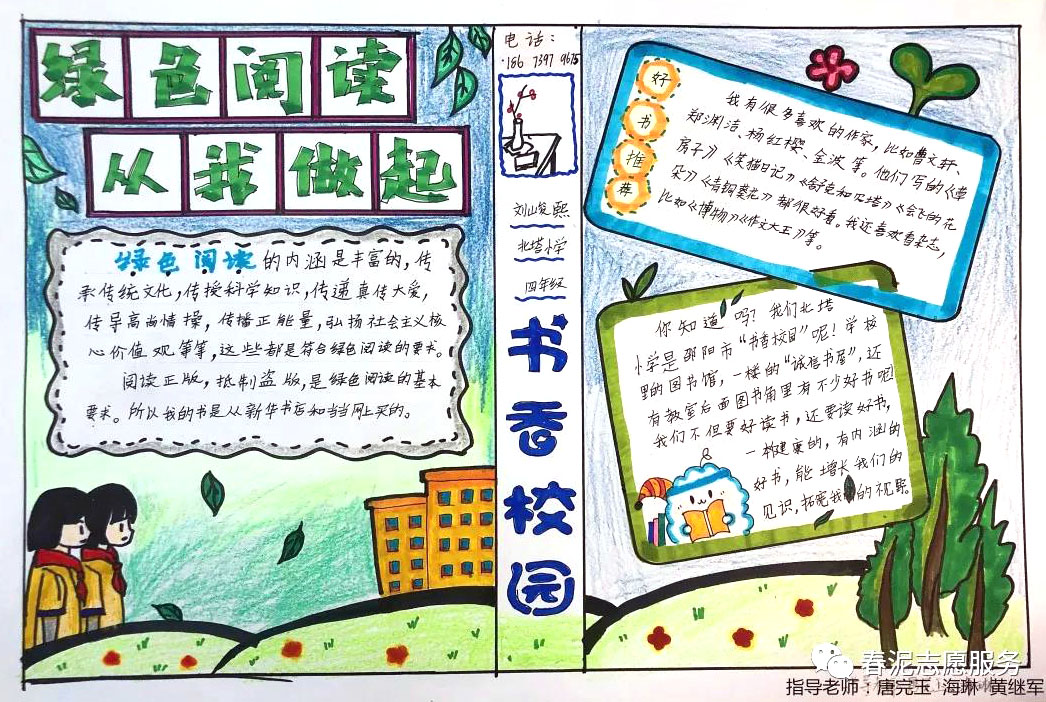 绿色阅读
从我做起
绿色阅读的内涵是丰富的,传
承传统文化,传授科学知识,传递真传大爱,
传导高尚情操,传播正能量,弘扬社会主义核
心价值观等等,这些都是符合绿色阅读的要求。
阅读正版,抵制盗版,是绿色阅读的基本
要求。所以我的书是从新华书店和当当网上买的。
电话:
刘峻熙
北塔小学
四年级
书香校园
好书推荐
我有很多喜欢的作家,比如曹文轩、
郑渊洁、杨红樱、金波等。他们写的《草
房子》《笑猫日记》《舒克和贝塔》《会飞的花
朵》《青铜葵花》都很好看。我还喜欢看杂志,
比如《博物》《作文大王》等。
你知道吗?我们北塔
小学是邵阳市“书香校园”呢!学校
里的图书馆,一楼的“诚信书屋”,还
有教室后面图书角里有不少好书呢
我们不但要好读书,还要读好书,
一种健康的,有内涵的
好书,能增长我们的
见识,拓宽我们的视野。
春泥志愿服务
指导老师:唐完玉 海琳 黄继军